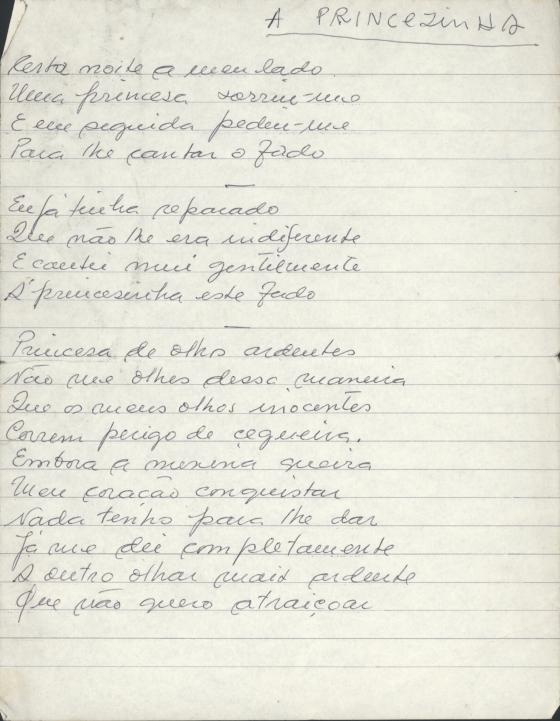 A PRINCEZINHA
Nesta noite a meu lado
Uma princesa sorriu-me
E em seguida pediu-me
Para lhe cantar o fado
—
Eu já tinha reparado
Que não lhe era indiferente
E cantei mui gentilmente
À princesinha este fado
—
Princesa de olhos ardentes
Não me olhes dessa maneira
Que os meus olhos inocentes
Correm perigo de cegueira.
Embora a menina queira
Meu coração conquistar
Nada tenho para lhe dar
Já me dei completamente
A outro olhar mais ardente
Que não quero atraiçoar